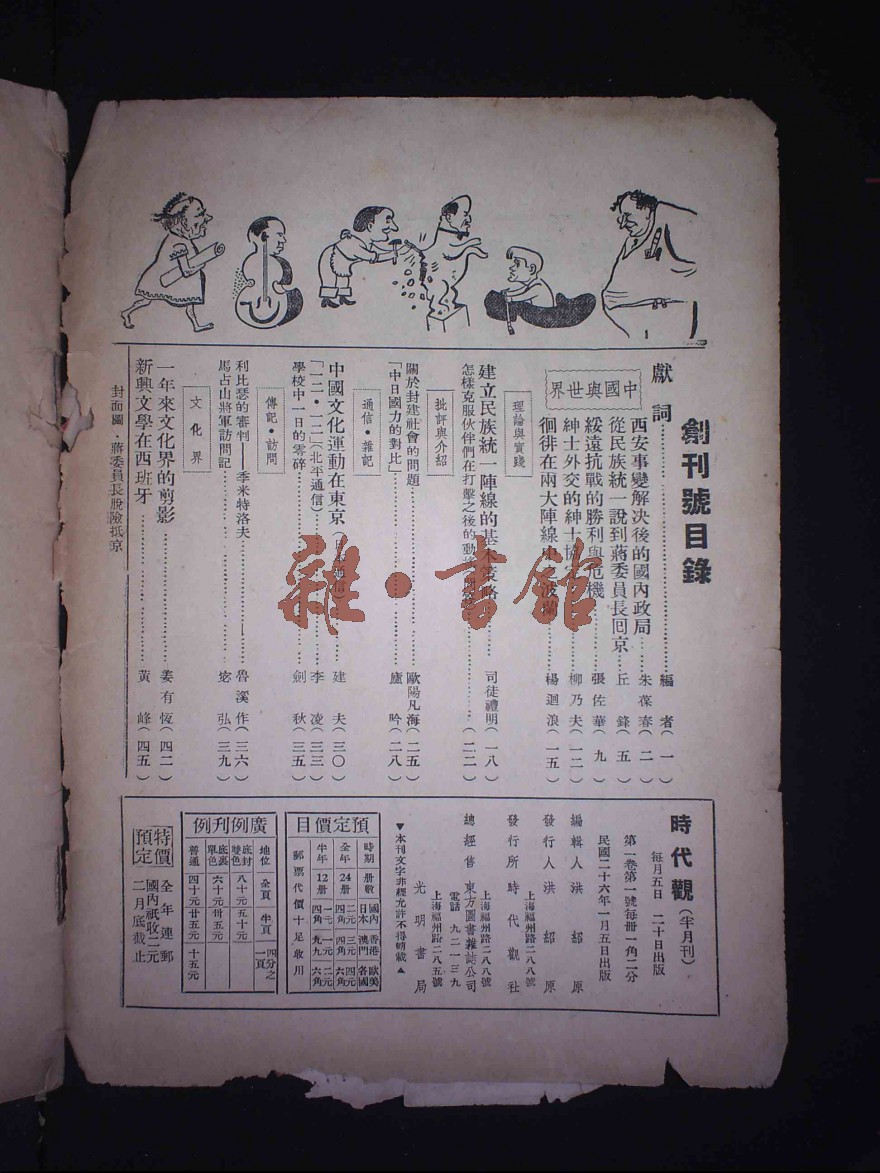 創刊號目錄
獻詞 編者(一)
中國與世界
西安事變解決後的國內政局 朱葆春(二)
從民族統一說到蔣委員長囘京 丘鋒(五)
綏遠抗戰的勝利與危機 張佐華(九)
紳士外交的紳士協 柳乃夫(一二)
徊徘在兩大陣線 之波蘭 楊迴浪(一五)
理論與實踐
建立民族統一陣線的基本策略 司徒禮明(一八)
怎樣克服伙伴們在打擊之後的動 (二二)
批評與介紹
關於封建社會的問題 歐陽凡海(二五)
「中日國力的對比」 廬吟(二八)
通信・雜記
中國文化運動在東京 建夫(三〇)
「一二・一二」(北平通信) 李凌(三三)
學校中一日的零碎 劍秋(三五)
傳記・訪問
利比瑟的審判——季米特洛夫 魯溪作(三六)
馬占山將軍訪問記 宓弘(三九)
文化界
一年來文化界的剪影 姜有恆(四二)
新興文學在西班牙 黃峰(四五)
封面圖・蔣委員長脫險抵京
雜・書館
時代觀(半月刊)
每月五日 二十日出版
第一卷第一號每冊一角二分
民國二十六年一月五日出版
編輯人 洪紹原
發行人 洪紹原
上海福州路二八八號
發行所 時代觀社
上海福州路二八八號
總經售 東方圖書雜誌公司
電話 九二一三九
上海福州路二八五號
光明書局
▼本刊文字非經允許不得轉載▲
預定價目
時期 冊數 國內日本 香港澳門 歐美各國
全年 24冊 二元四角 三元四角 四元六角
半年 12冊 一元四角 一元九角 二元六角
郵票代價十足收用
廣例刊例
地位 全頁 半頁 四分之一頁
底封雙色 八十元 五十元
底裏單色 六十元 卅五元
普通 四十元 廿五元 十五元
特價預定
全年連郵
國內祇收二元
二月底截止